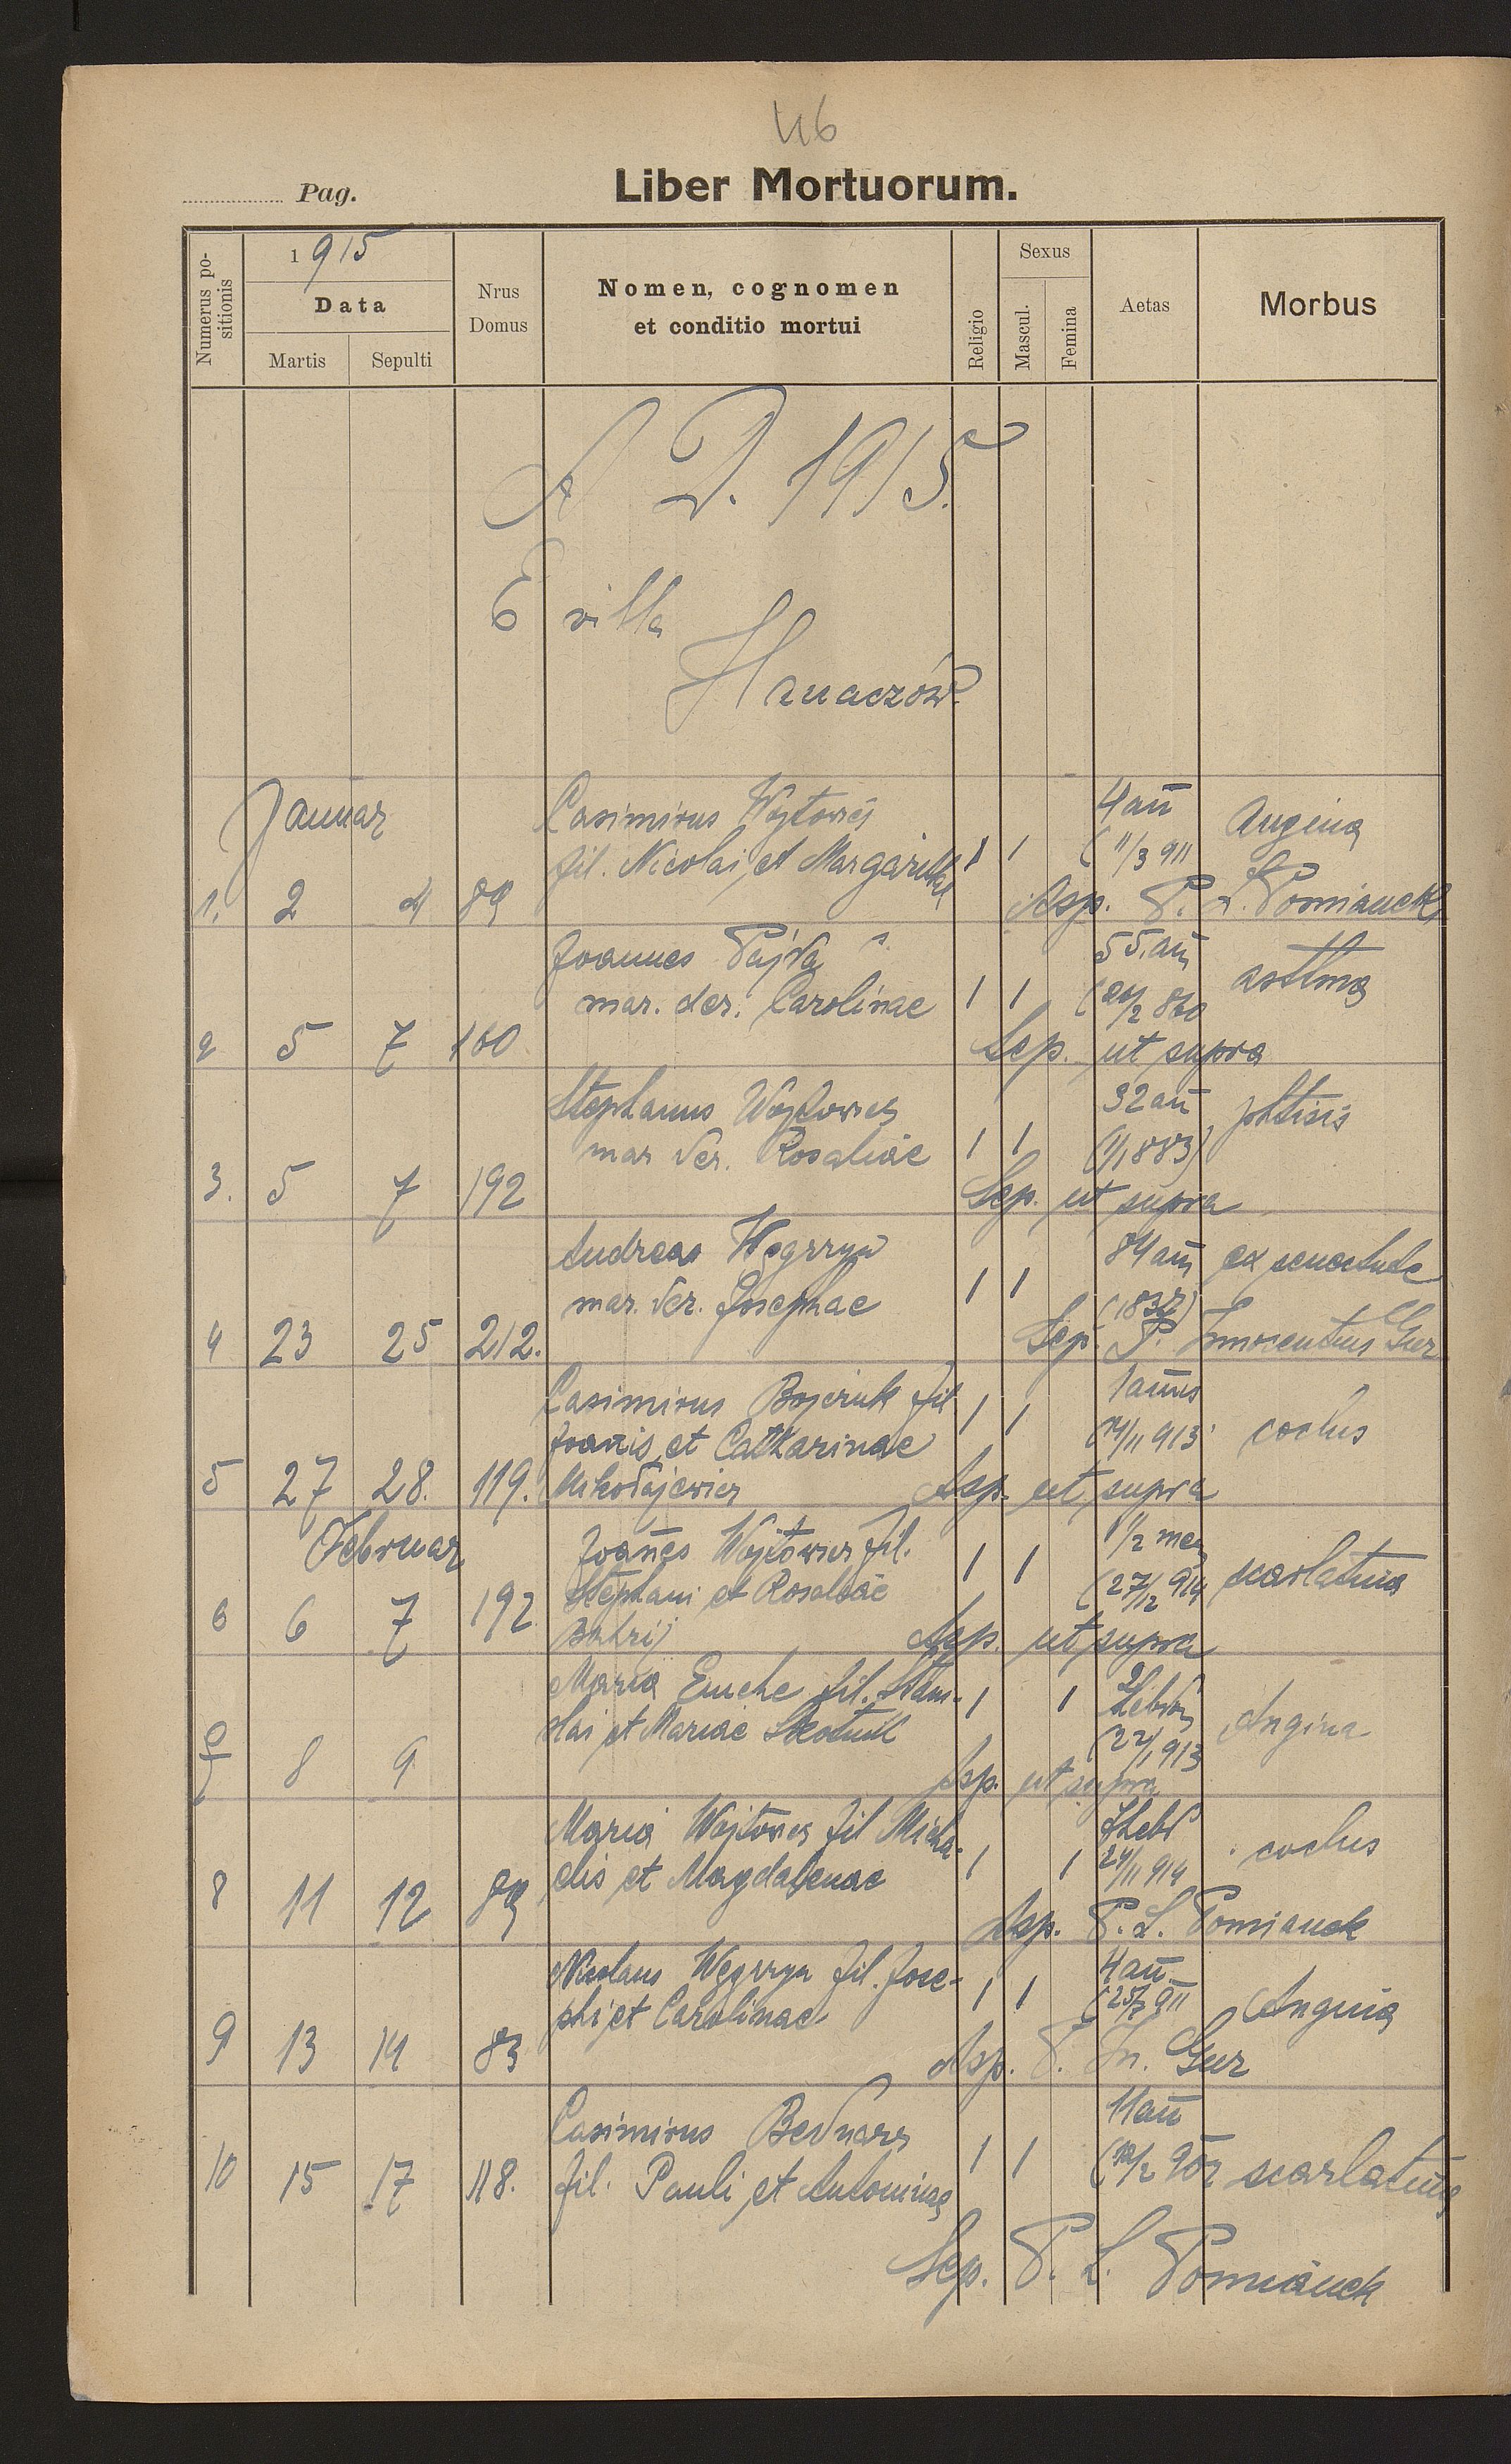 46
Pag.
Liber Mortuorum.
Numerus positionis
1915
Data
Martis
Sepulti
Nrus Domus
Nomen, cognomen
et conditio mortui
Religio
Sexus
Mascul.
Femina
Aetas
Morbus
A D. 1915.
E villa
Hanaczów
Januar
Casimirus Wojtowicz 4 an̄ Angina
fil. Nicolai et Margarithae 1 1 (11/3 911
1. 2 4 89 Asp. P. L. Pomianek
Joannes Pajda 55. an̄ asthma
mar. der. Carolinae 1 1 (
2 5 7 160 Sep. ut supra
Stephanus Wojtowicz 32 an̄ phtisis
mar der. Rosaliae 1 1 (1/1 883)
3. 5 7 192 Sep. ut supra
Andreas Węgrzyn 84 an̄ ex senectute
mar. der. Josephae 1 1
4 23 25 212. Sep. P. Innocentius Gur
Casimirus fil 1 1 1 annus
Joannis et Catharinae 913 coclus
5 27 28. 119. Mikołajewicz Asp. ut supra
Februar Joan̄es Wojtowicz fil. 1 1 1 1/2 men
Stephani et Rosaliae (27/12 914 scarlatina
6 6 7 192 Asp. ut supra
Maria fil. Stanis- 1 1 2
lai et Mariae (22/1 913 Angina
7 8 9 Asp. ut supra
Maria Wojtowicz fil Micha-
elis et Magdalenae 1 1 24/11 914 coclus
8 11 12 89 Asp. P. L. Pomianek
Nicolaus Węgrzyn fil. Jose- 1 1 4 an̄
phi et Carolinae 911 Angina
9 13 14 83 Asp. P. In. Gur
Casimirus Bednarz 11 an̄
10 15 17 118. fil. Pauli et Antoninae 1 1 scarlatina
Sep. P. L. Pomianek